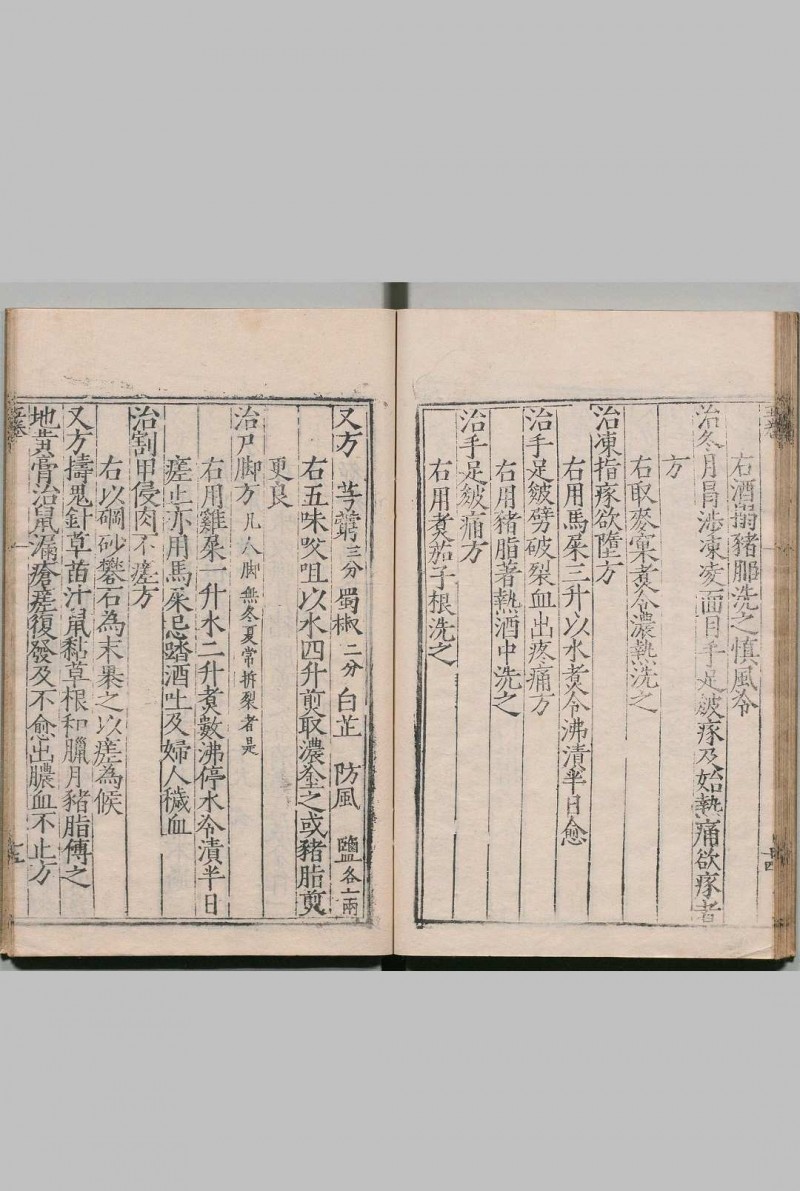 右酒搦豬胰洗之慎風冷
治冬月冒涉凍凌面目手足皴瘃及始熱痛欲瘃者
方
右取麥窠煮令濃熱洗之
治凍指瘃欲墮方
右用馬屎三升以水煮令沸漬半日愈
治手足皴劈破裂血出疼痛方
右用豬脂著熱酒中洗之
治手足皴痛方
右用煮茄子根洗之
又方 芎藭三分 蜀椒二分 白芷 防風 鹽各一兩
右五味㕮咀以水四升煎取濃塗之或豬脂煎
更良
治尸脚方凡人脚無冬夏常拆裂者是
右用雞屎一升水二升煮數沸停水冷漬半日
瘥止亦用馬屎忌踏酒吐及婦人穢血
治割甲侵肉不瘥方
右以硇砂礬石為末裹之以瘥為候
又方擣鬼針草苗汁鼠黏草根和臘月豬脂傅之
地黃膏治鼠漏瘡瘥復發及不愈出膿血不止方